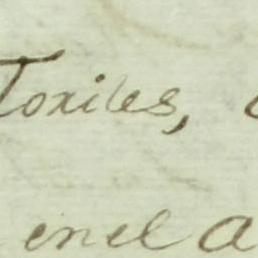 Toxiles,
en el a